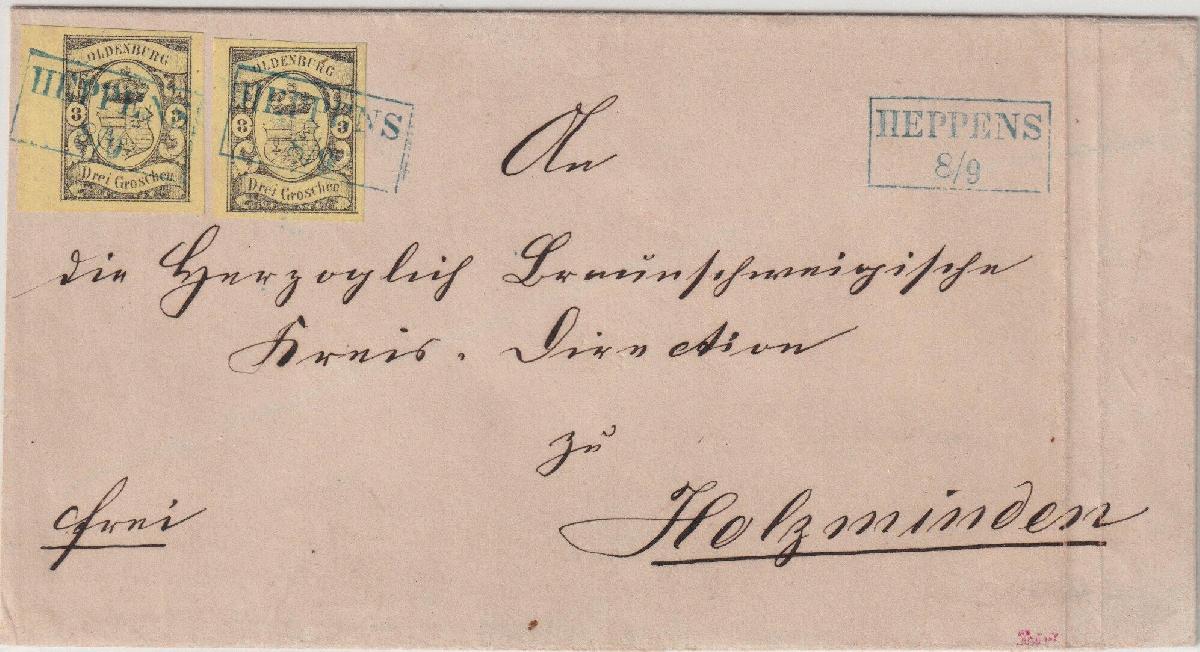 OLDENBURG
3 3
Drei Groschen
HEPPENS
8/9
OLDENBURG
3 3
Drei Groschen
HEPPENS
8/9
HEPPENS
8/9
An
die Herzoglich Braunschweigische
Kreis. Direction
zu
frei
Holzminden